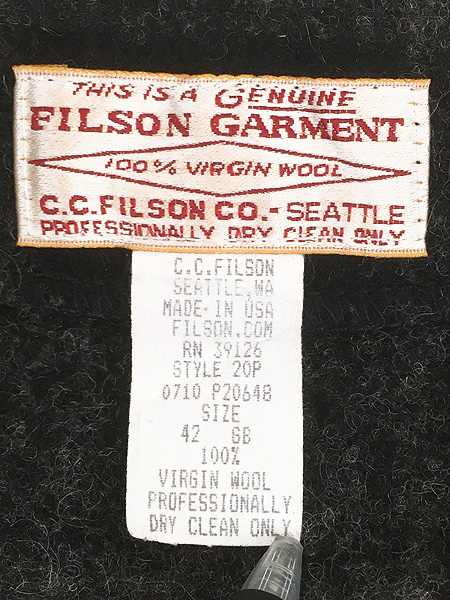 THIS IS A GENUINE
FILSON GARMENT
100% VIRGIN WOOL
C.C.FILSON CO.- SEATTLE
PROFESSIONALLY DRY CLEAN ONLY
C.C.FILSON
SEATTLE,WA
MADE IN USA
FILSON.COM
RN 39126
STYLE 20P
0710 P20648
SIZE
42 GB
100%
VIRGIN WOOL
PROFESSIONALLY
DRY CLEAN ONLY